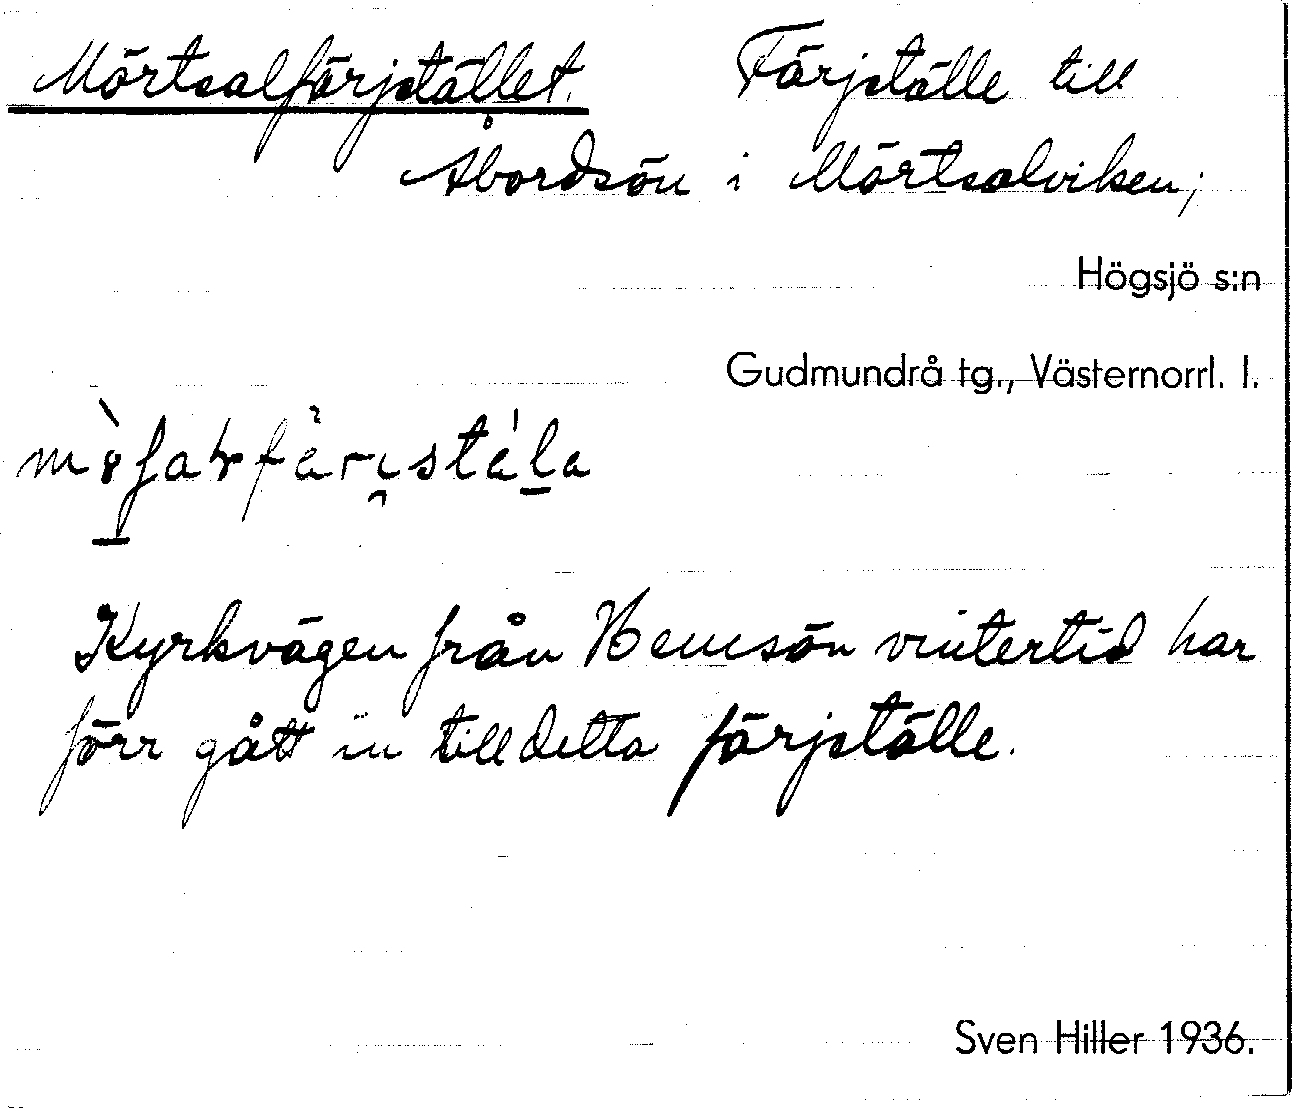 Mörtsalfärjstället. Färjställe till
Åbordsön i Mörtsalviken;
Högsjö s:n
Gudmundrå tg., Västernorrl. l.
Kyrkvägen från Hemsön vintertid har
förr gått in till detta färjställe.
Sven Hiller 1936.